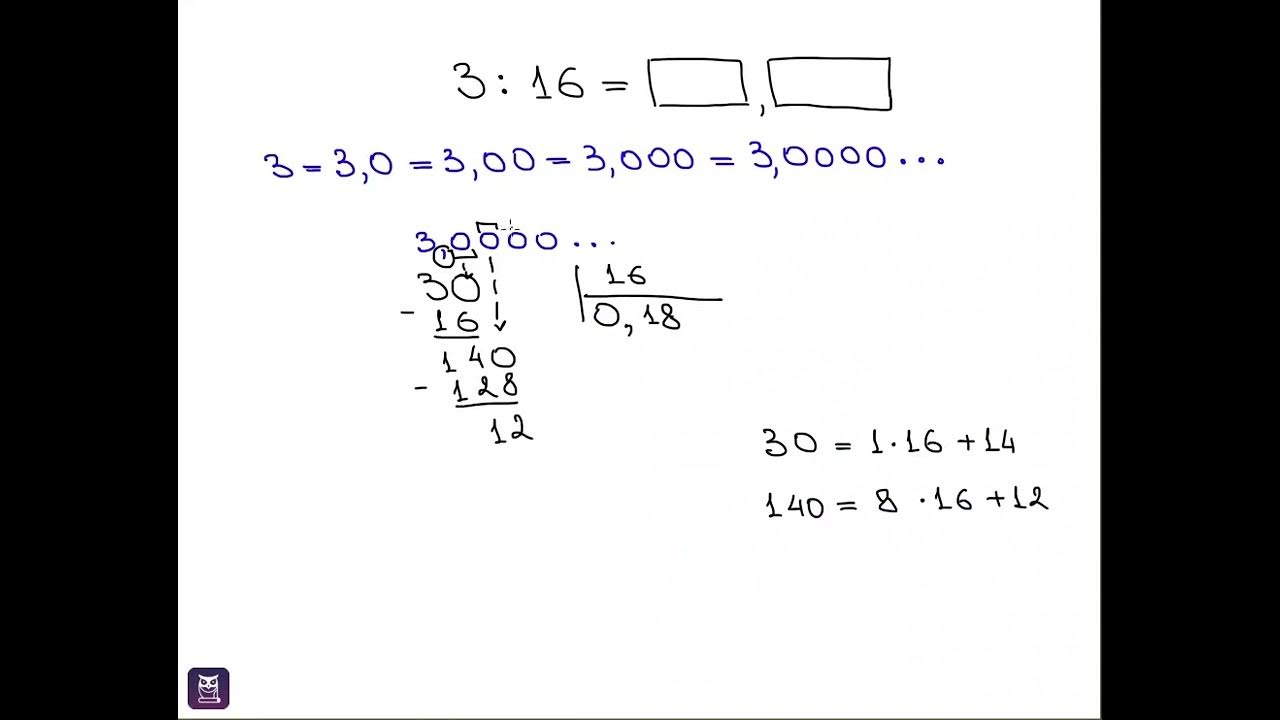 3 : 16 = ,
3 = 3,0 = 3,00 = 3,000 = 3,0000...
3,0000...
30
16
- 16
0,18
140
- 128
12
30 = 1·16 + 14
140 = 8·16 + 12